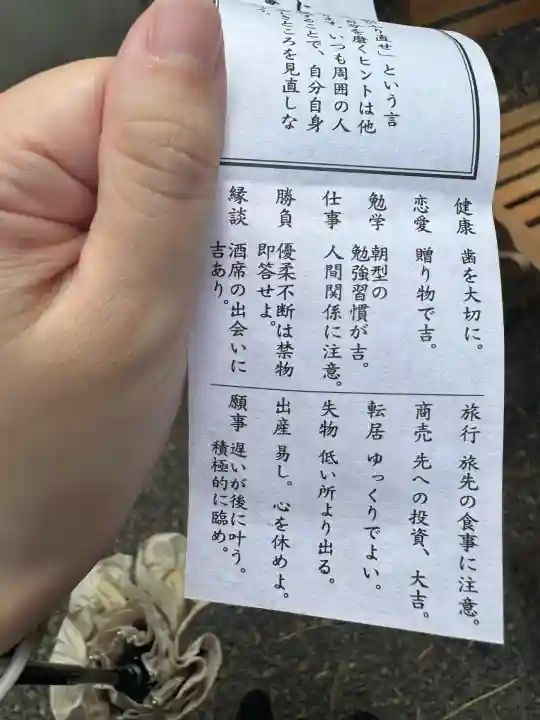 り直せ」という言
を磨くヒントは他
、いつも周囲の人
ることで、自分自身
ところを見直しな
健康 歯を大切に。
恋愛 贈り物で吉。
勉学 朝型の
勉強習慣が吉。
仕事 人間関係に注意。
勝負 優柔不断は禁物
即答せよ。
縁談 酒席の出会いに
吉あり。
旅行 旅先の食事に注意。
商売 先への投資、大吉。
転居 ゆっくりでよい。
失物 低い所より出る。
出産 易し。心を休めよ。
願事 遅いが後に叶う。
積極的に臨め。